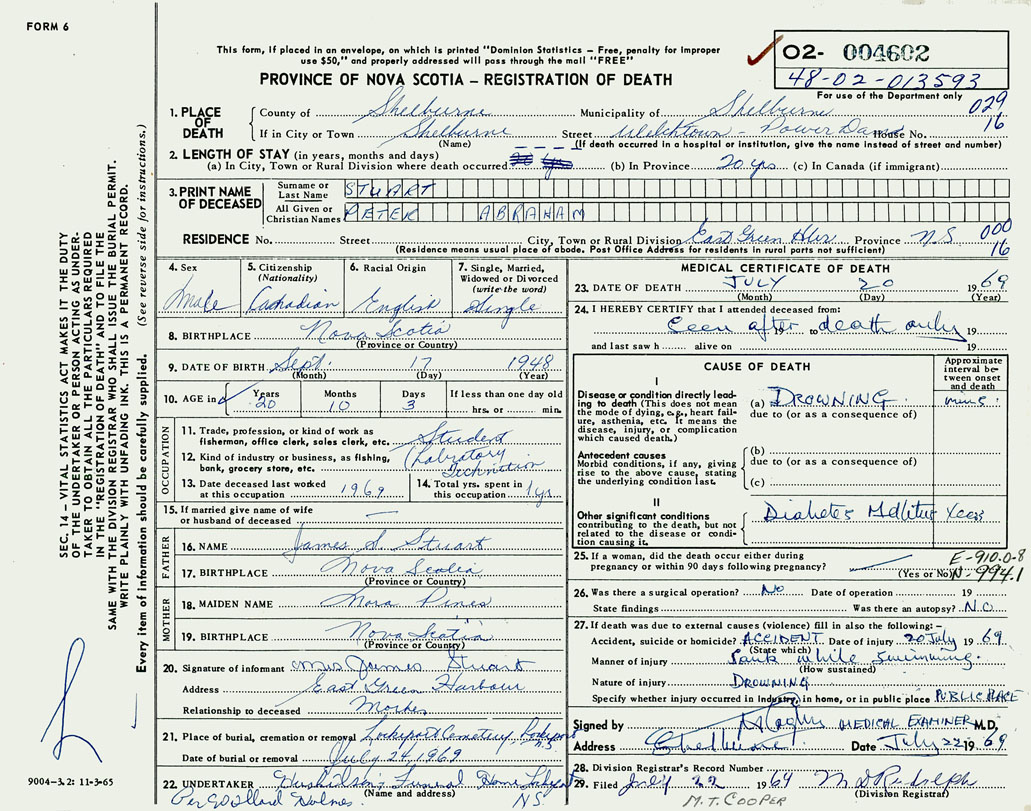 FORM 6
This form, if placed in an envelope, on which is printed "Dominion Statistics – Free, penalty for improper
use $50," and properly addressed will pass through the mail "FREE"
PROVINCE OF NOVA SCOTIA – REGISTRATION OF DEATH
O2- 004602
48-02-013593
For use of the Department only
029
16
1. PLACE OF DEATH
County of Shelburne Municipality of Shelburne
If in City or Town Shelburne Street Welchtown - Power Dam House No.
(Name) (If death occurred in a hospital or institution, give the name instead of street and number)
2. LENGTH OF STAY (in years, months and days)
(a) In City, Town or Rural Division where death occurred (b) In Province 20 yrs. (c) In Canada (if immigrant)
3. PRINT NAME OF DECEASED
Surname or Last Name STUART
All Given or Christian Names PETER ABRAHAM
RESIDENCE No. Street City, Town or Rural Division East Green Hbr Province N S
(Residence means usual place of abode. Post Office Address for residents in rural parts not sufficient)
000
16
4. Sex
Male
5. Citizenship
(Nationality)
Canadian
6. Racial Origin
English
7. Single, Married,
Widowed or Divorced
(write the word)
Single
8. BIRTHPLACE Nova Scotia
(Province or Country)
9. DATE OF BIRTH Sept. 17 1948
(Month) (Day) (Year)
10. AGE in Years Months Days If less than one day old
20 10 3 hrs. or min.
OCCUPATION
11. Trade, profession, or kind of work as
fisherman, office clerk, sales clerk, etc. Student
12. Kind of industry or business, as fishing,
bank, grocery store, etc. (Labratory
Technition
13. Date deceased last worked
at this occupation 1969
14. Total yrs. spent in
this occupation 1 yr.
15. If married give name of wife
or husband of deceased —
FATHER
16. NAME James S. Stuart
17. BIRTHPLACE Nova Scotia
(Province or Country)
MOTHER
18. MAIDEN NAME Nora
19. BIRTHPLACE Nova Scotia
(Province or Country)
20. Signature of informant Mrs James Stuart
Address East Green Harbour
Relationship to deceased Mother
21. Place of burial, cremation or removal Lockeport Cemetery Lockeport N.S
Date of burial or removal July 24, 1969
22. UNDERTAKER Funeral Home
(Name and address) NS
MEDICAL CERTIFICATE OF DEATH
23. DATE OF DEATH JULY 20 1969
(Month) (Day) (Year)
24. I HEREBY CERTIFY that I attended deceased from:
Seen after to death only 19
and last saw h alive on 19
CAUSE OF DEATH
Approximate
interval be-
tween onset
and death
I
Disease or condition directly lead-
ing to death (This does not mean
the mode of dying, e.g., heart fail-
ure, asthenia, etc. It means the
disease, injury, or complication
which caused death.)
(a) DROWNING mins.
due to (or as a consequence of)
Antecedent causes
Morbid conditions, if any, giving
rise to the above cause, stating
the underlying condition last.
(b)
due to (or as a consequence of)
(c)
II
Other significant conditions
contributing to the death, but not
related to the disease or condi-
tion causing it.
Diabetes Mellitus Years
25. If a woman, did the death occur either during
pregnancy or within 90 days following pregnancy?
(Yes or No)
E-910.0-8
N-994.1
26. Was there a surgical operation? No Date of operation 19
State findings Was there an autopsy? N.O
27. If death was due to external causes (violence) fill in also the following:–
Accident, suicide or homicide? ACCIDENT Date of injury 20 July 1969
(State which)
Manner of injury Sank while swimming.
(How sustained)
Nature of injury DROWNING
Specify whether injury occurred in industry, in home, or in public place PUBLIC PLACE
Signed by MEDICAL EXAMINER M.D.
Address Shelburne Date July 22 1969
28. Division Registrar's Record Number
29. Filed July 22 1969 M D Rudolph
(Division Registrar)
M.T. COOPER
SEC. 14 – VITAL STATISTICS ACT MAKES IT THE DUTY
OF THE UNDERTAKER OR PERSON ACTING AS UNDER-
TAKER TO OBTAIN ALL THE PARTICULARS REQUIRED
IN THE "REGISTRATION OF DEATH" AND TO FILE THE
SAME WITH THE DIVISION REGISTRAR WHO SHALL ISSUE THE BURIAL PERMIT.
WRITE PLAINLY WITH UNFADING INK. THIS IS A PERMANENT RECORD.
Every item of information should be carefully supplied. (See reverse side for instructions.)
9004-3.2: 11-3-65